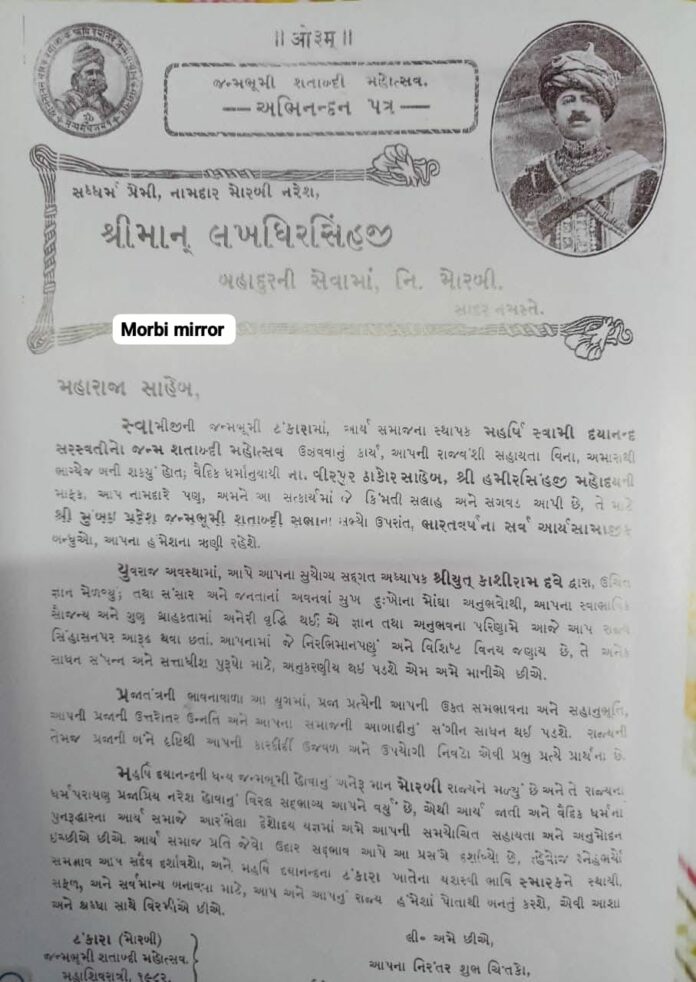 ॥ ओ३म् ॥
જન્મભૂમી શતાબ્દી મહોત્સવ.
— અભિનન્દન પત્ર —
સદ્ધર્મ પ્રેમી, નામદાર મોરબી નરેશ,
શ્રીમાન્ લખધિરસિંહજી
બહાદુરની સેવામાં, નિ. મોરબી.
સાદર નમસ્તે.
Morbi mirror
મહારાજા સાહેબ,
સ્વામીજીની જન્મભૂમી ટંકારામાં, આર્ય સમાજના સ્થાપક મહર્ષિ સ્વામી દયાનન્દ
સરસ્વતીનો જન્મ શતાબ્દી મહોત્સવ ઉજવવાનું કાર્ય, આપની રાજવંશી સહાયતા વિના, અમારાથી
ભાગ્યેજ બની શકયું હોત; વૈદિક ધર્માનુયાયી ના. વીરપુર ઠાકોર સાહેબ, શ્રી હમીરસિંહજી મહોદયની
માફક, આપ નામદારે પણ, અમને આ સત્કાર્યમાં જે કિંમતી સલાહ અને સગવડ આપી છે, તે માટે
શ્રી મુંબઇ પ્રદેશ જન્મભૂમી શતાબ્દી સભાના સભ્યો ઉપરાંત, ભારતવર્ષના સર્વ આર્યસામાજીક
બન્ધુઓ, આપના હંમેશના ઋણી રહેશે.
યુવરાજ અવસ્થામાં, આપે આપના સુયોગ્ય સદ્ગત અધ્યાપક શ્રીયુત્ કાશીરામ દવે દ્વારા, ઉચિત
જ્ઞાન મેળવ્યું; તથા સંસાર અને જનતાનાં અવનવાં સુખ દુઃખોના મોંઘા અનુભવોથી, આપના સ્વાભાવિક
સૌજન્ય અને ગુણ ગ્રાહકતામાં અનેરી વૃદ્ધિ થઈ; એ જ્ઞાન તથા અનુભવના પરિણામે આજે આપ રાજ્ય
સિંહાસનપર આરૂઢ થવા છતાં, આપનામાં જે નિરભિમાનપણું અને વિશિષ્ટ વિનય જણાય છે, તે અનેક
સાધન સંપન્ન અને સત્તાધીશ પુરૂષો માટે, અનુકરણીય થઈ પડશે એમ અમે માનીએ છીએ.
પ્રજાતંત્રની ભાવનાવાળા આ યુગમાં, પ્રજા પ્રત્યેની આપની ઉક્ત સમભાવના અને સહાનુભૂતિ,
આપની પ્રજાની ઉત્તરોતર ઉન્નતિ અને આપના સમાજની આબાદીનું સંગીન સાધન થઈ પડશે. રાજ્યની
તેમજ પ્રજાની બંને દ્રષ્ટિથી આપની કારકીર્દી ઉજવળ અને ઉપયોગી નિવડો એવી પ્રભુ પ્રત્યે પ્રાર્થના છે.
મહર્ષિ દયાનન્દની ધન્ય જન્મભૂમી હોવાનું અનેરૂં માન મોરબી રાજ્યને મળ્યું છે અને તે રાજ્યના
ધર્મપરાયણ પ્રજાપ્રિય નરેશ હોવાનું વિરલ સદ્ભાગ્ય આપને વર્યું છે, એથી આર્ય જાતી અને વૈદિક ધર્મના
પુનરૂદ્ધારના આર્ય સમાજે આરંભેલા દેશોદય યજ્ઞમાં અમે આપની સમયોચિત સહાયતા અને અનુમોદન
ઇચ્છીએ છીએ. આર્ય સમાજ પ્રતિ જેવો ઉદાર સદ્ભાવ આપે આ પ્રસંગે દર્શાવ્યો છે, તેવોજ સ્નેહભર્યો
સમભાવ આપ સદૈવ દર્શાવશો, અને મહર્ષિ દયાનન્દના ટંકારા ખાતેના યશસ્વી ભાવિ સ્મારકને સ્થાયી,
સફળ, અને સર્વમાન્ય બનાવવા માટે, આપ અને આપનું રાજ્ય હંમેશાં પોતાથી બનતું કરશે, એવી આશા
અને શ્રદ્ધા સાથે વિરમીએ છીએ.
ટંકારા (મોરબી)
જન્મભૂમી શતાબ્દી મહોત્સવ.
મહાશિવરાત્રી, ૧૯૮૨.
લી૦ અમે છીએ,
આપના નિરંતર શુભ ચિંતકો,